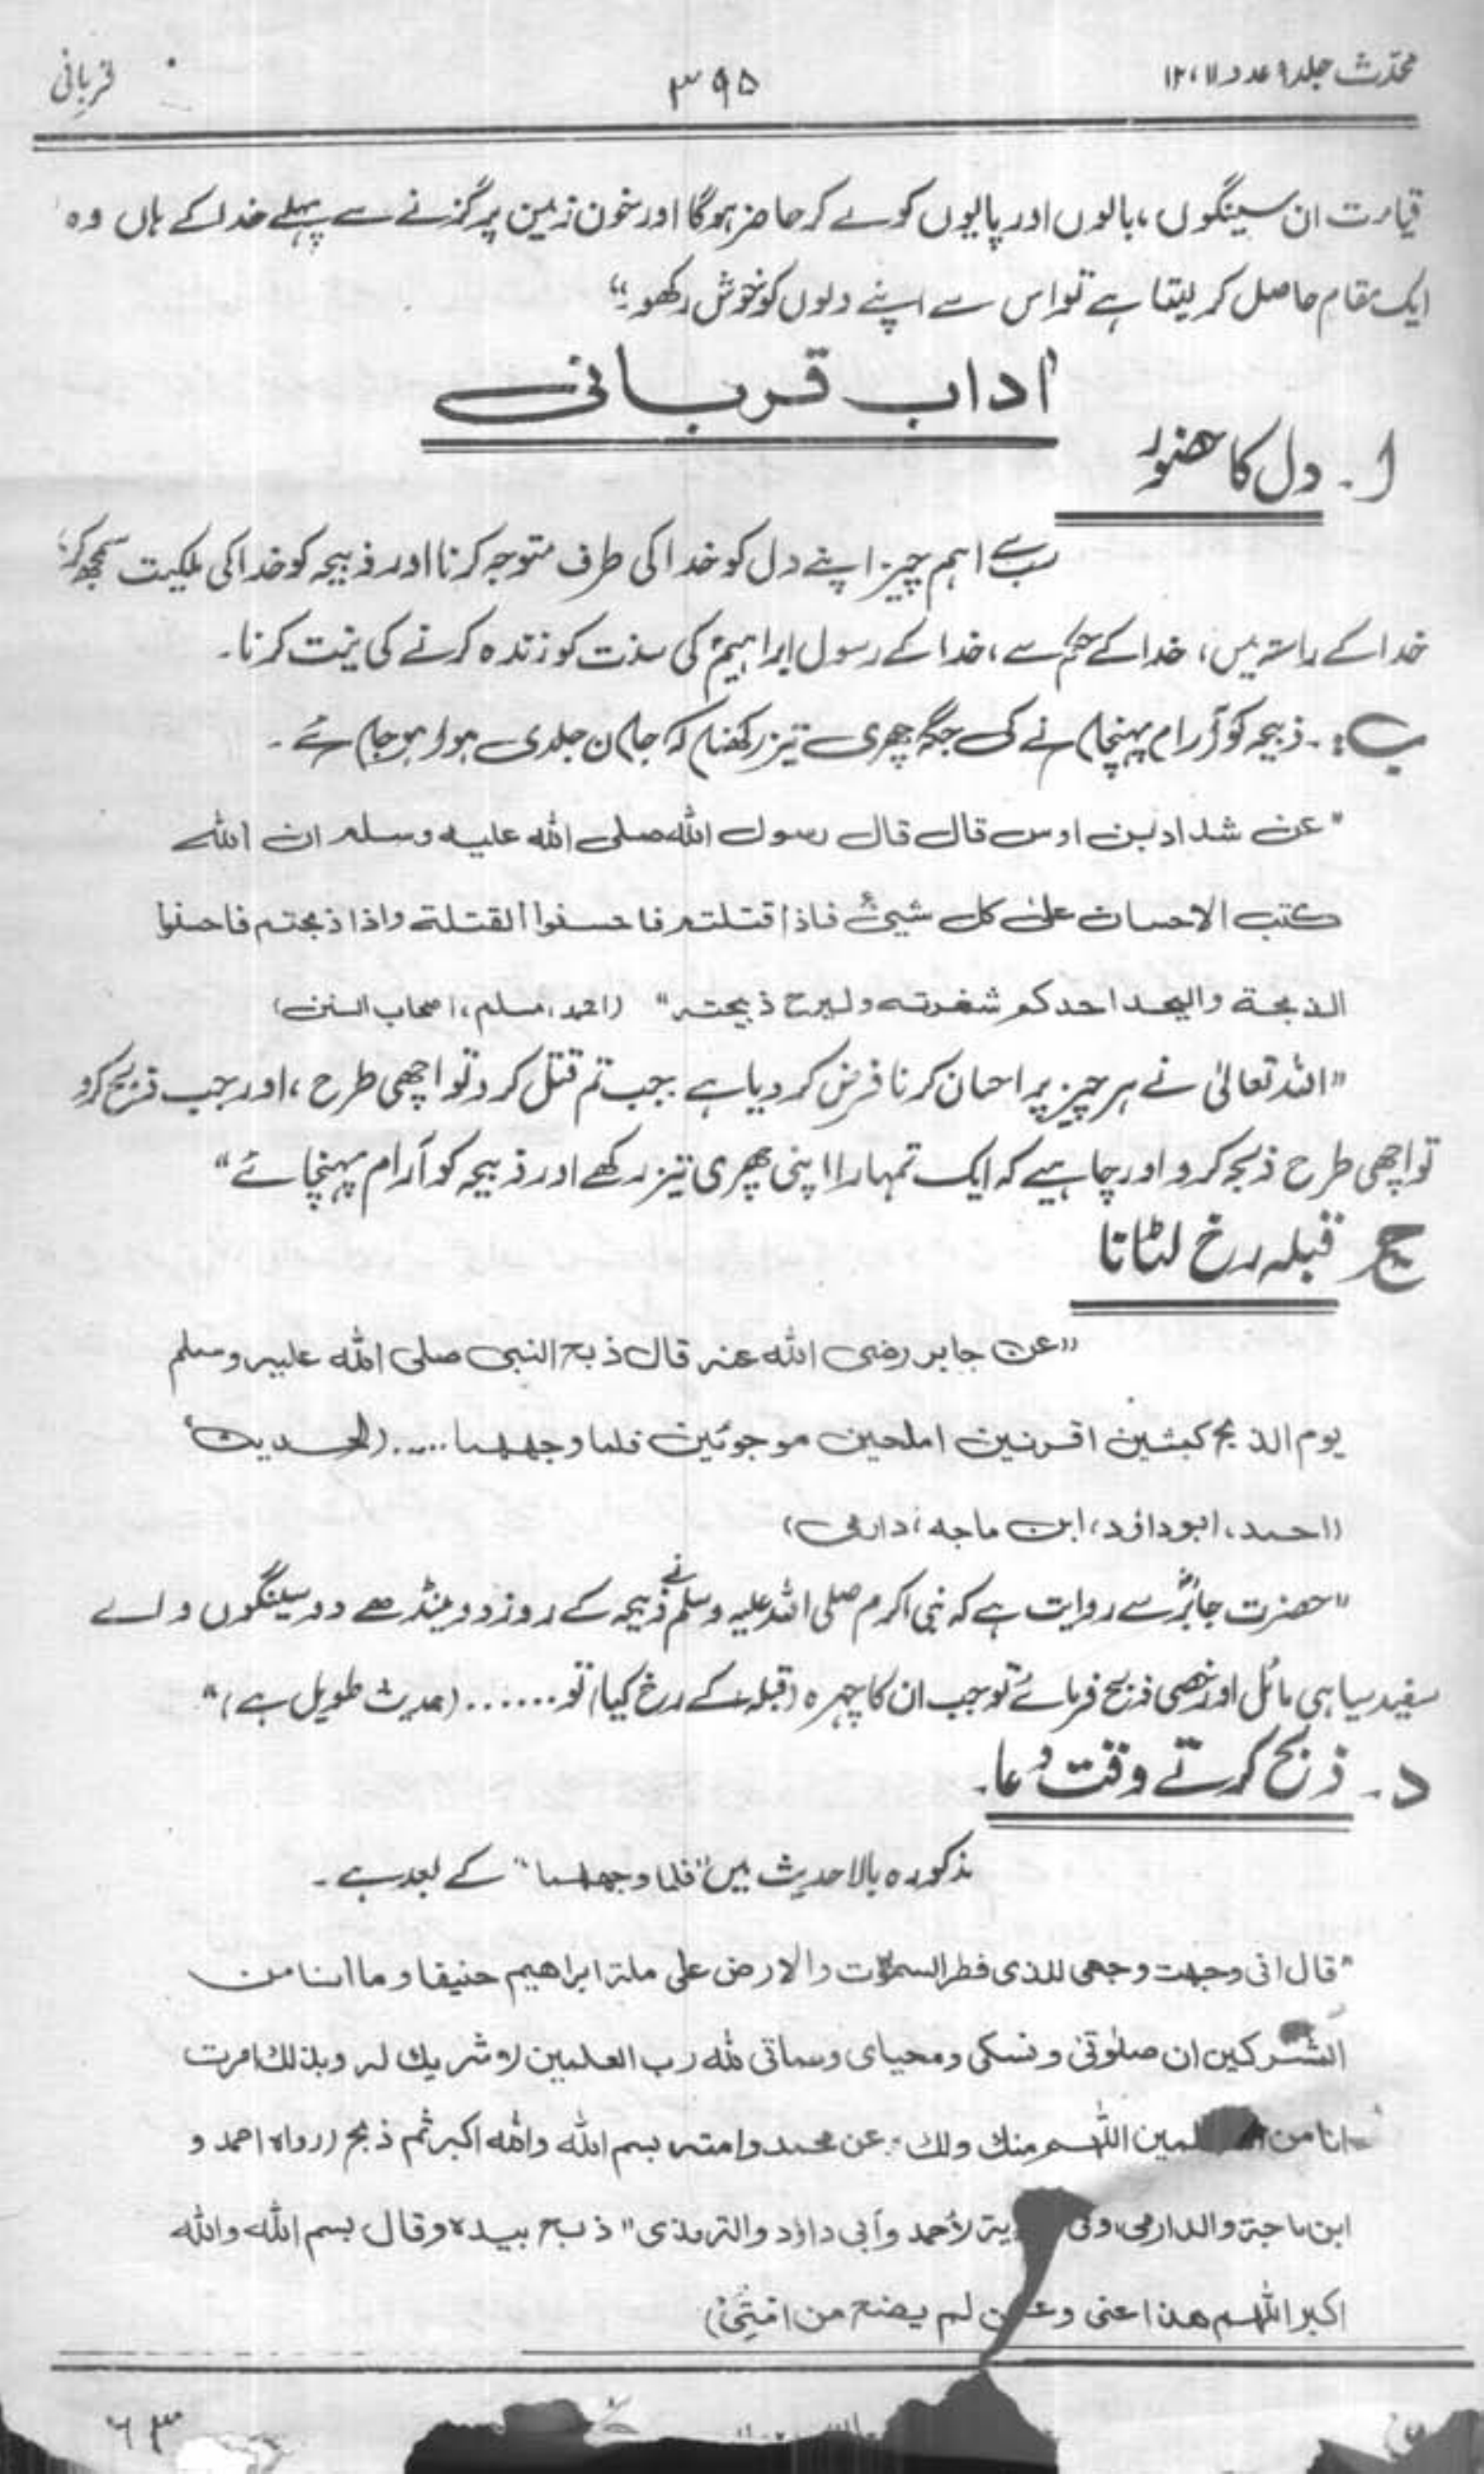 محدّث جلد ۹ عدد ۱۱، ۱۲
۳۹۵
قربانی
قیامت ان سینگوں، بالوں اور پالیوں کو لے کر حاضر ہوگا اور خون زمین پر گرنے سے پہلے خدا کے ہاں وہ
ایک مقام حاصل کر لیتا ہے تو اس سے اپنے دلوں کو خوش رکھو۔"
اداب قربانی
ا۔ دل کا حضور
سب سے اہم چیز اپنے دل کو خدا کی طرف متوجہ کرنا اور ذبیحہ کو خدا کی ملکیت سمجھ کر،
خدا کے راستہ میں، خدا کے حکم سے، خدا کے رسول ابراہیمؑ کی سنت کو زندہ کرنے کی نیت کرنا۔
ب:۔ ذبیحہ کو آرام پہنچانے کی جگہ چھری تیز رکھنا کہ جان جلدی ہوا ہو جائے۔
"عن شداد بن اوس قال قال رسول اللہ صلی اللہ علیہ وسلم ان اللہ
کتب الاحسان علیٰ کل شیئ فاذا قتلتم فاحسنوا القتلۃ واذا ذبحتم فاحسنوا
الذبحۃ والیحد احدکم شفرتہ ولیرح ذبیحتہ" (احمد، مسلم، اصحاب السنن)
"اللہ تعالیٰ نے ہر چیز پر احسان کرنا فرض کر دیا ہے جب تم قتل کرو تو اچھی طرح، اور جب ذبح کرو
تو اچھی طرح ذبح کرو اور چاہیے کہ ایک تمہارا اپنی چھری تیز رکھے اور ذبیحہ کو آرام پہنچائے"
ج قبلہ رخ لٹانا
"عن جابر رضی اللہ عنہ قال ذبح النبی صلی اللہ علیہ وسلم
یوم الذبح کبشین اقرنین املحین موجوئین فلما وجھھما ..... (الحدیث
(احمد، ابوداؤد، ابن ماجہ، دارمی)
"حضرت جابرؓ سے روایت ہے کہ نبی اکرم صلی اللہ علیہ وسلم نے ذبیحہ کے روز دو مینڈھے دو سینگوں والے
سفید سیاہی مائل اور خصی ذبح فرمائے تو جب ان کا چہرہ (قبلہ کے رخ کیا) تو ...... (حدیث طویل ہے)"
د۔ ذبح کرتے وقت دُعا۔
مذکورہ بالا حدیث میں "فلما وجھھما" کے بعد ہے۔
"قال انی وجھت وجھی للذی فطر السمٰوٰت والارض علی ملۃ ابراھیم حنیفا وما انا من
المشرکین ان صلوٰتی ونسکی ومحیای ومماتی للہ رب العلمین لا شریك لہ وبذلك امرت
انا من لمین اللھم منك ولك عن محمد وامتہ بسم اللہ واللہ اکبر ثم ذبح (رواہ احمد و
ابن ماجۃ والدارمی وفی یۃ لأحمد وأبی داؤد والترمذی" ذبح بیدہ وقال بسم اللہ واللہ
اکبر اللھم ھذا عنی وعمن لم یضح من امتی)
۶۳